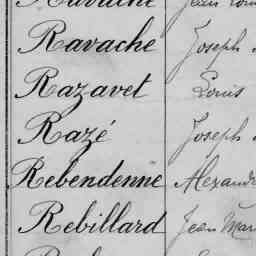 Ravache Joseph
Razavet Louis
Razé Joseph
Rebendenne Alexandre
Rebillard Jean Mar